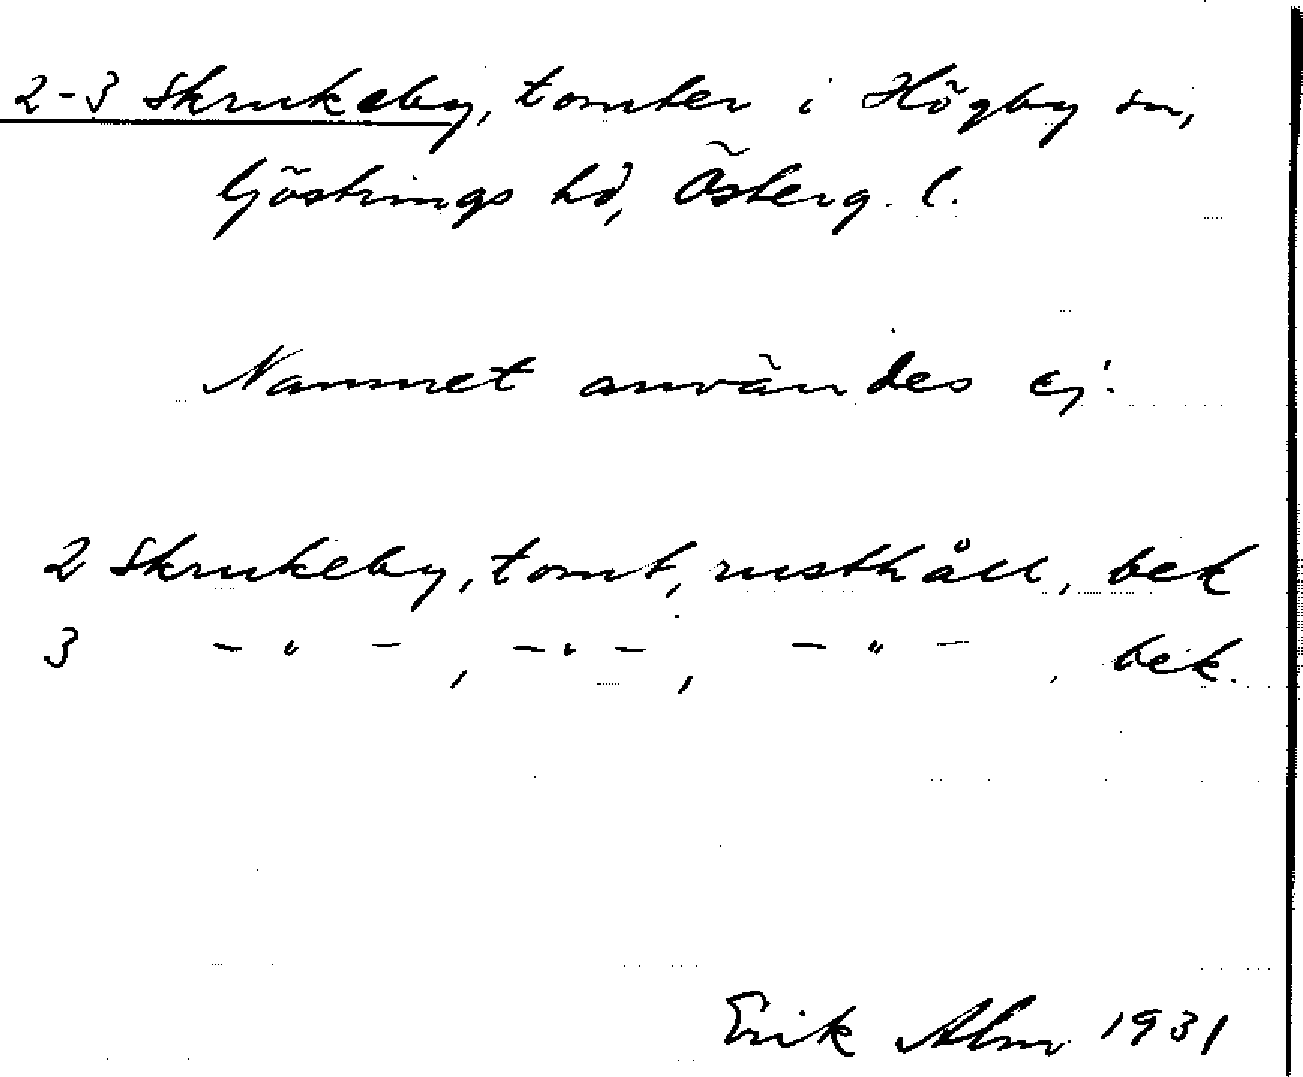 2-3 Skrukeby, tomter i Högby sn,
Göstrings hd, Österg. l.
Namnet användes ej.
2 Skrukeby, tomt, rusthåll, bek
3 - " - , - " - , - " - , bek.
Erik Alm 1931